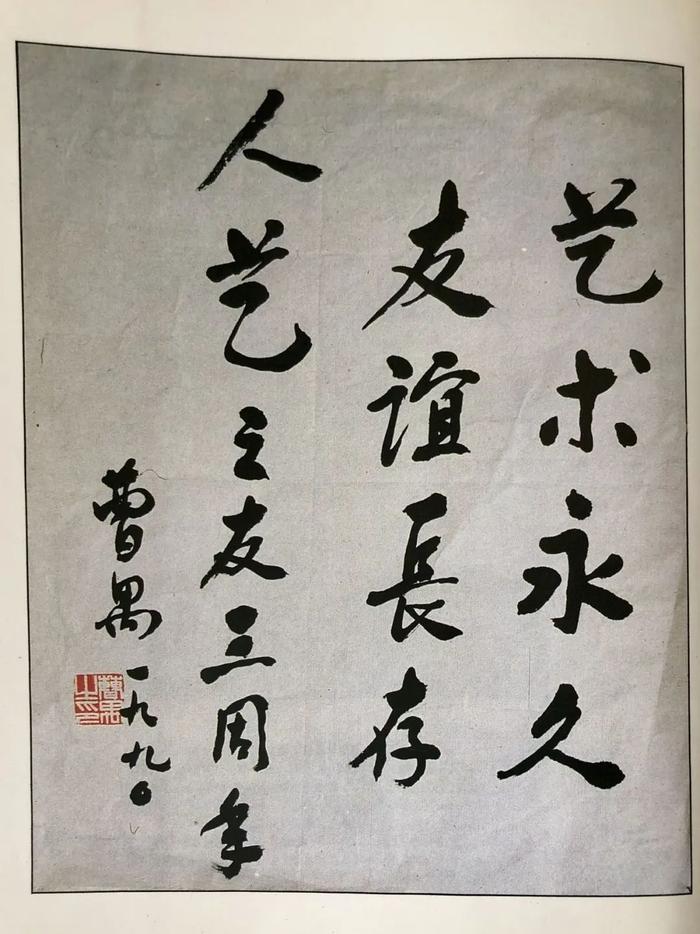 艺术永久
友谊長存
人艺之友三周年
曹禺 一九九〇